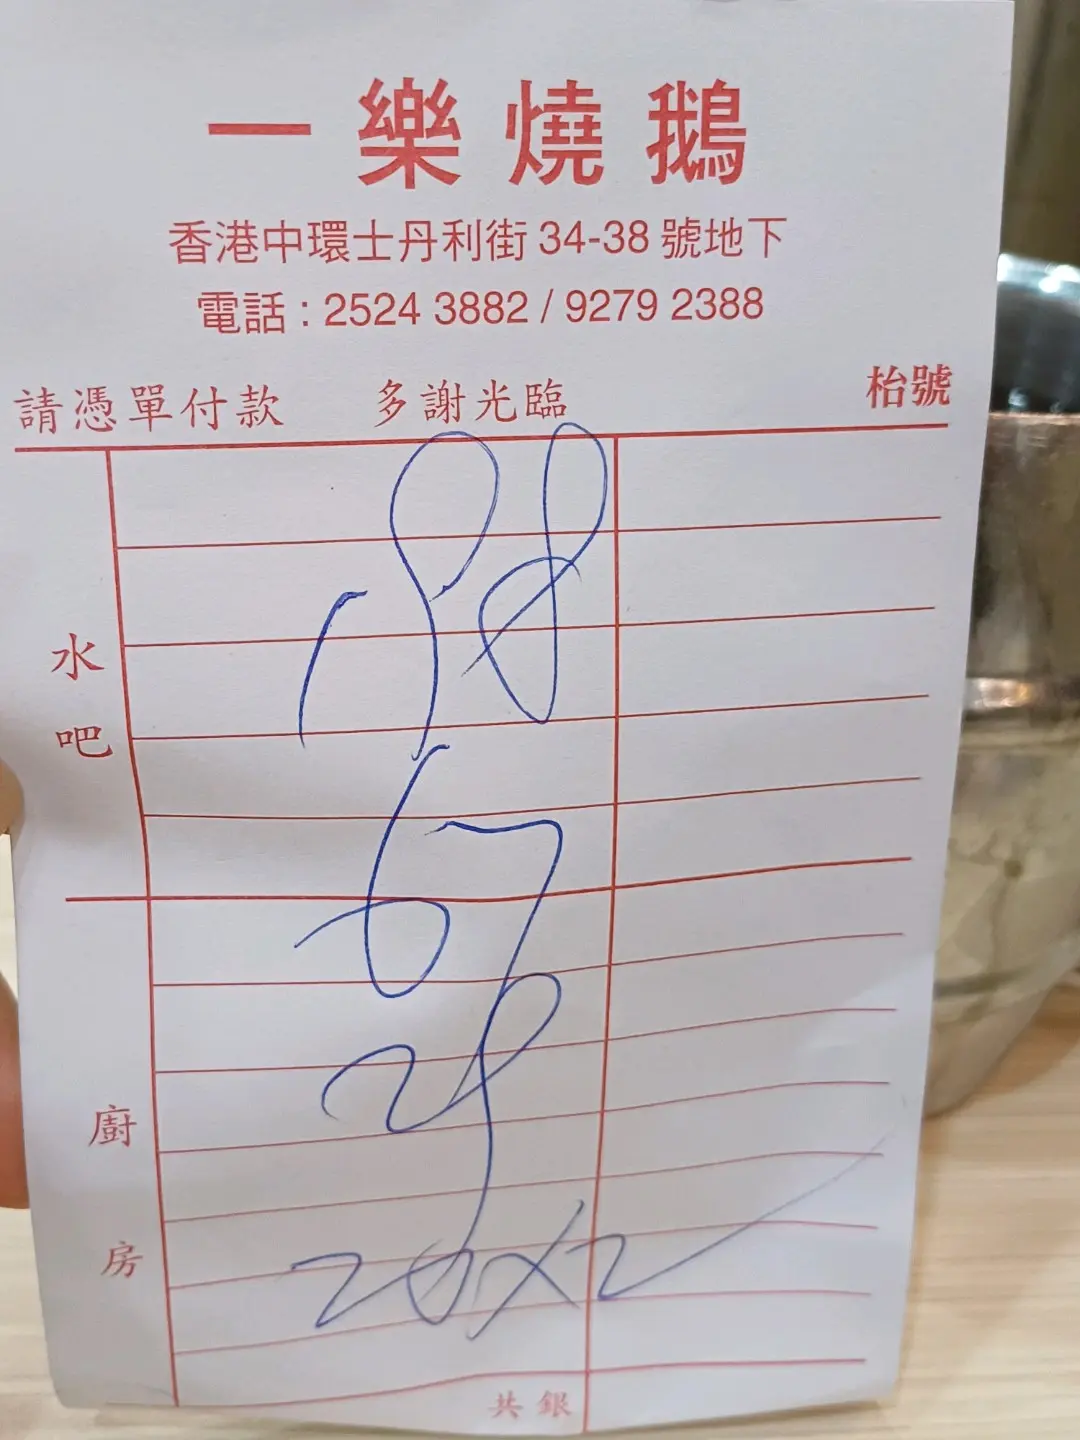 一樂燒鵝
香港中環士丹利街 34-38 號地下
電話 : 2524 3882 / 9279 2388
請憑單付款 多謝光臨 枱號
水吧
67
廚房
共銀